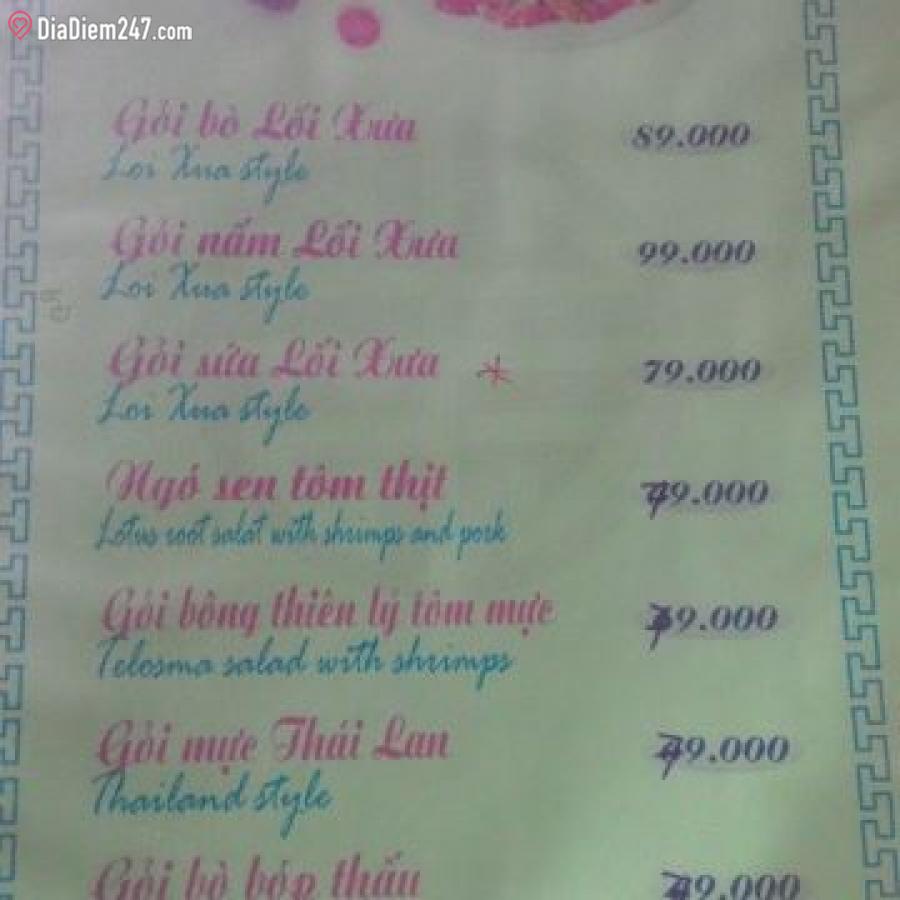 DiaDiem247.com
Gỏi bò Lối Xưa 89.000
Loi Xua style
Gỏi nấm Lối Xưa 99.000
Loi Xua style
Gỏi sứa Lối Xưa 79.000
Loi Xua style
Ngó sen tôm thịt 79.000
Lotus root salat with shrimps and pork
Gỏi bông thiên lý tôm mực 79.000
Telosma salad with shrimps
Gỏi mực Thái Lan 79.000
Thailand style
Gỏi bò bóp thấu 79.000